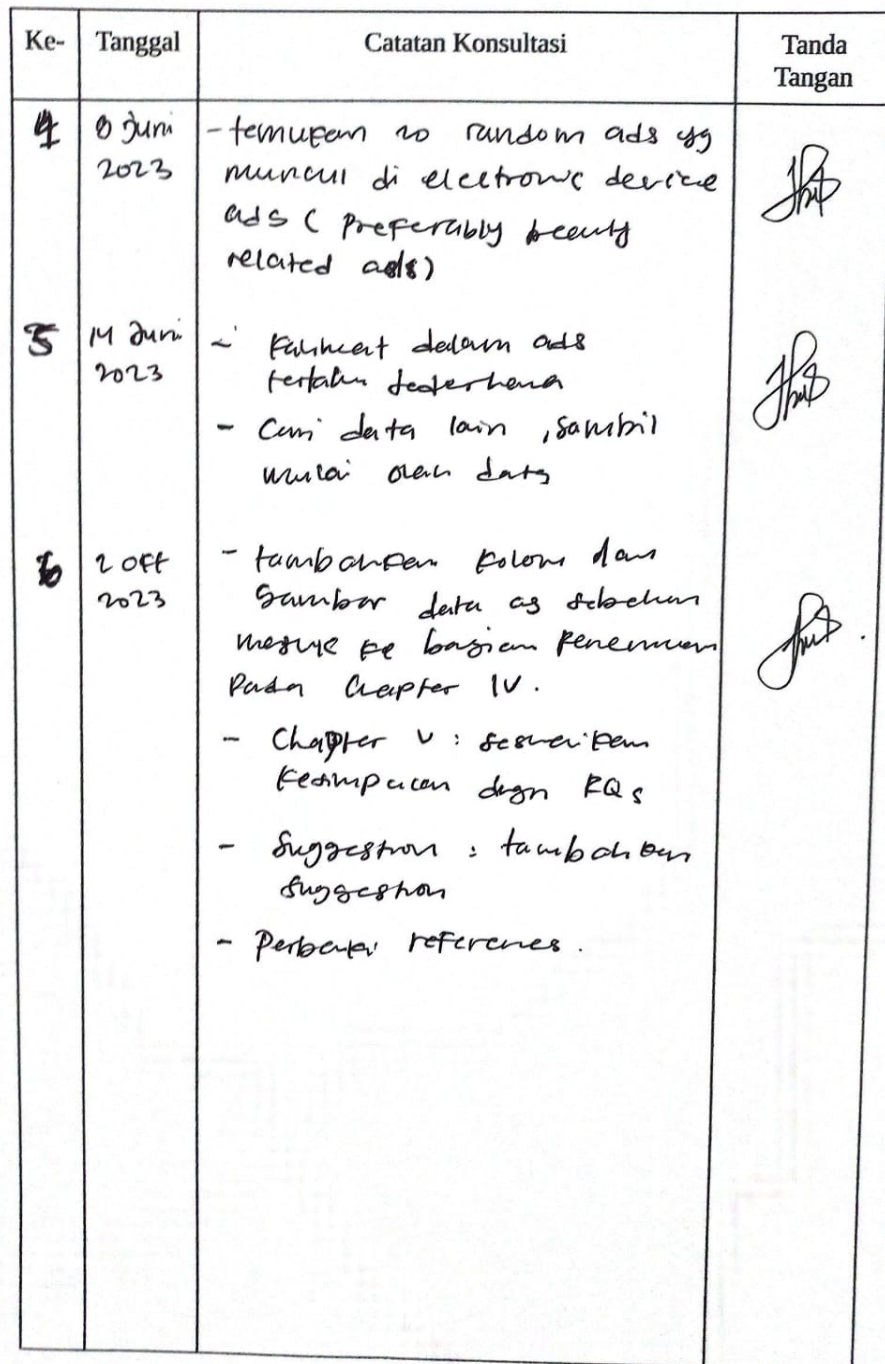 Ke- Tanggal Catatan Konsultasi Tanda
Tangan
4 8 Juni - temukan 20 random ads yg
2023 muncul di electronic device
ads ( preferably beauty
related ads)
5 14 Juni - Kalimat dalam ads
2023 terlalu sederhana
- Cari data lain, sambil
mulai olah data
6 2 Okt - tambahkan kolom dan
2023 gambar data ads sebelum
masuk ke bagian penemuan
Pada Chapter IV.
- Chapter V : sesuaikan
kesimpulan dgn RQs
- Suggestion : tambahkan
suggestion
- Perbaiki references.